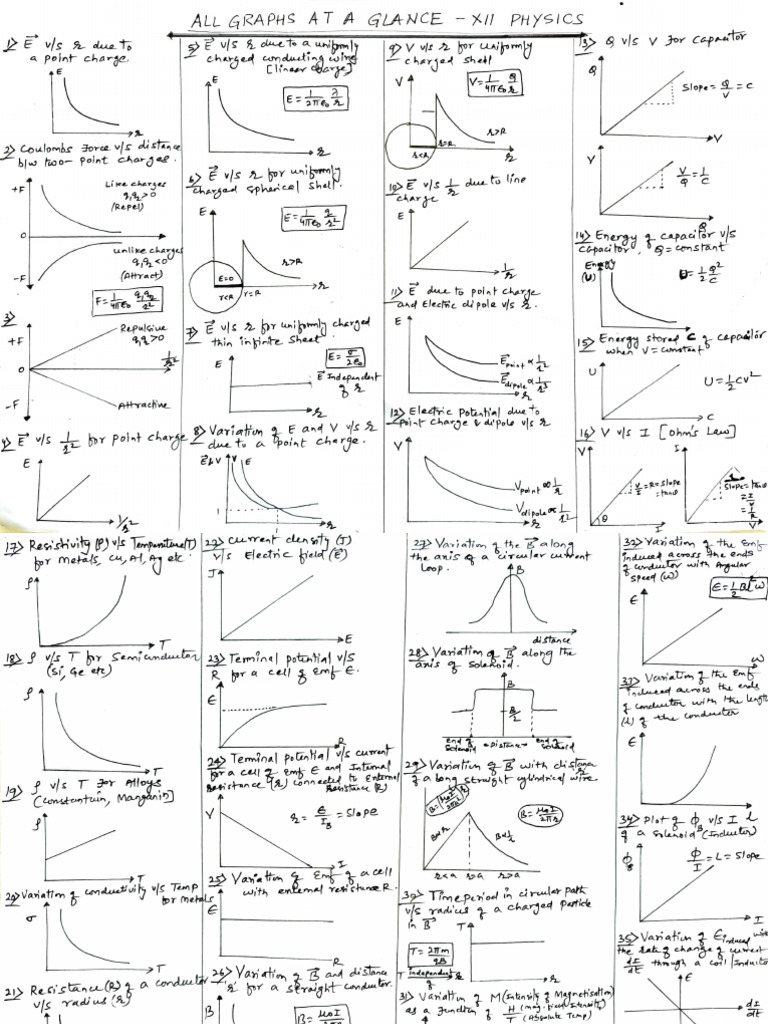 ALL GRAPHS AT A GLANCE - XII PHYSICS
1) E v/s r due to
a point charge.
E
r
2) Coulombs Force v/s distance
b/w two-point charges.
+F
Like charges
q1q2>0
(Repel)
0
unlike charges
q1q2<0
(Attract)
-F
F = 1/4πε0 q1q2/r²
3)
+F
Repulsive
q1q2>0
0
1/r²
-F
Attractive
4) E v/s 1/r² for point charge
E
1/r²
5) E v/s r due to a uniformly
charged conducting wire
[linear charge]
E
E = 1/2πε0 λ/r
r
6) E v/s r for uniformly
charged spherical shell.
E
E = 1/4πε0 q/r²
E=0
r>R
r<R
r=R
r
7) E v/s r for uniformly charged
thin infinite sheet
E
E = σ/2ε0
E Independent
of r
r
8) Variation of E and V v/s r
due to a point charge.
E&V
V
E
1
r
9) V v/s r for uniformly
charged shell
V
V = 1/4πε0 Q/r
r>R
r<R
r=R
r
10) E v/s 1/r due to line
charge
E
1/r
11) E due to point charge
and Electric dipole v/s r.
E
Epoint ∝ 1/r²
Edipole ∝ 1/r³
r
12) Electric potential due to
point charge & dipole v/s r
V
Vpoint ∝ 1/r
Vdipole ∝ 1/r²
r
13) Q v/s V For capacitor
Q
Slope = Q/V = C
V
V
V/Q = 1/C
Q
14) Energy of capacitor v/s
capacitor, Q = constant
Energy
(U)
U = 1/2 Q²/C
C
15) Energy stored C of capacitor
when V = constant
U
U = 1/2 CV²
C
16) V v/s I [Ohm's Law]
V
V/I = R = slope
= tanθ
θ
I
I
slope = tanθ
= I/V
= 1/R
V
17) Resistivity (ρ) v/s Temperature(T)
for metals, Cu, Al, Ag etc.
ρ
T
18) ρ v/s T for Semiconductor
(Si, Ge etc)
ρ
T
19) ρ v/s T For Alloys
(Constantuin, Manganin]
ρ
T
20) Variation of conductivity v/s Temp
for Metals
σ
T
21) Resistance (R) of a conductor
v/s radius (r)
22) Current density (J)
v/s Electric field (E)
J
E
23) Terminal potential v/s
R for a cell of Emf E.
E
R
24) Terminal potential v/s current
for a cell of emf E and Internal
Resistance (r) connected to External
Resistance (R)
V
r = E/I = slope
I
25) Variation of Emf of a cell
with external resistance R.
E
R
26) Variation of B and distance
'r' for a straight conductor.
B
B = μ0I
27) Variation of the B along
the axis of a circular current
Loop.
B
distance
28) Variation of B along the
axis of solenoid.
B
B/2
end of
Solenoid
Distance
end of
Solenoid
29) Variation of B with distance
of a long straight cylindrical wire.
B = μ0I/2πr
B∝r
B∝1/r
r<a
r=a
r>a
30) Time period in circular path
v/s radius of a charged particle
in B
T
T = 2πm/qB
T Independent
of r
r
31) Variation of M (Intensity of Magnetisation)
as a function of H (mag. field Intensity)
T (Absolute Temp)
32) Variation of the Emf
induced across the ends
of conductor with Angular
speed (ω)
E
E = 1/2 Bl²ω
ω
33) Variation of the Emf
induced across the ends
of conductor with the length
(l) of the conductor
E
l
34) Plot of ϕB v/s I
of a solenoid (Inductor)
ϕB
ϕ/I = L = slope
I
35) Variation of Einduced with
the rate of change of current
dI/dt through a coil/Inductor
E
dI/dt